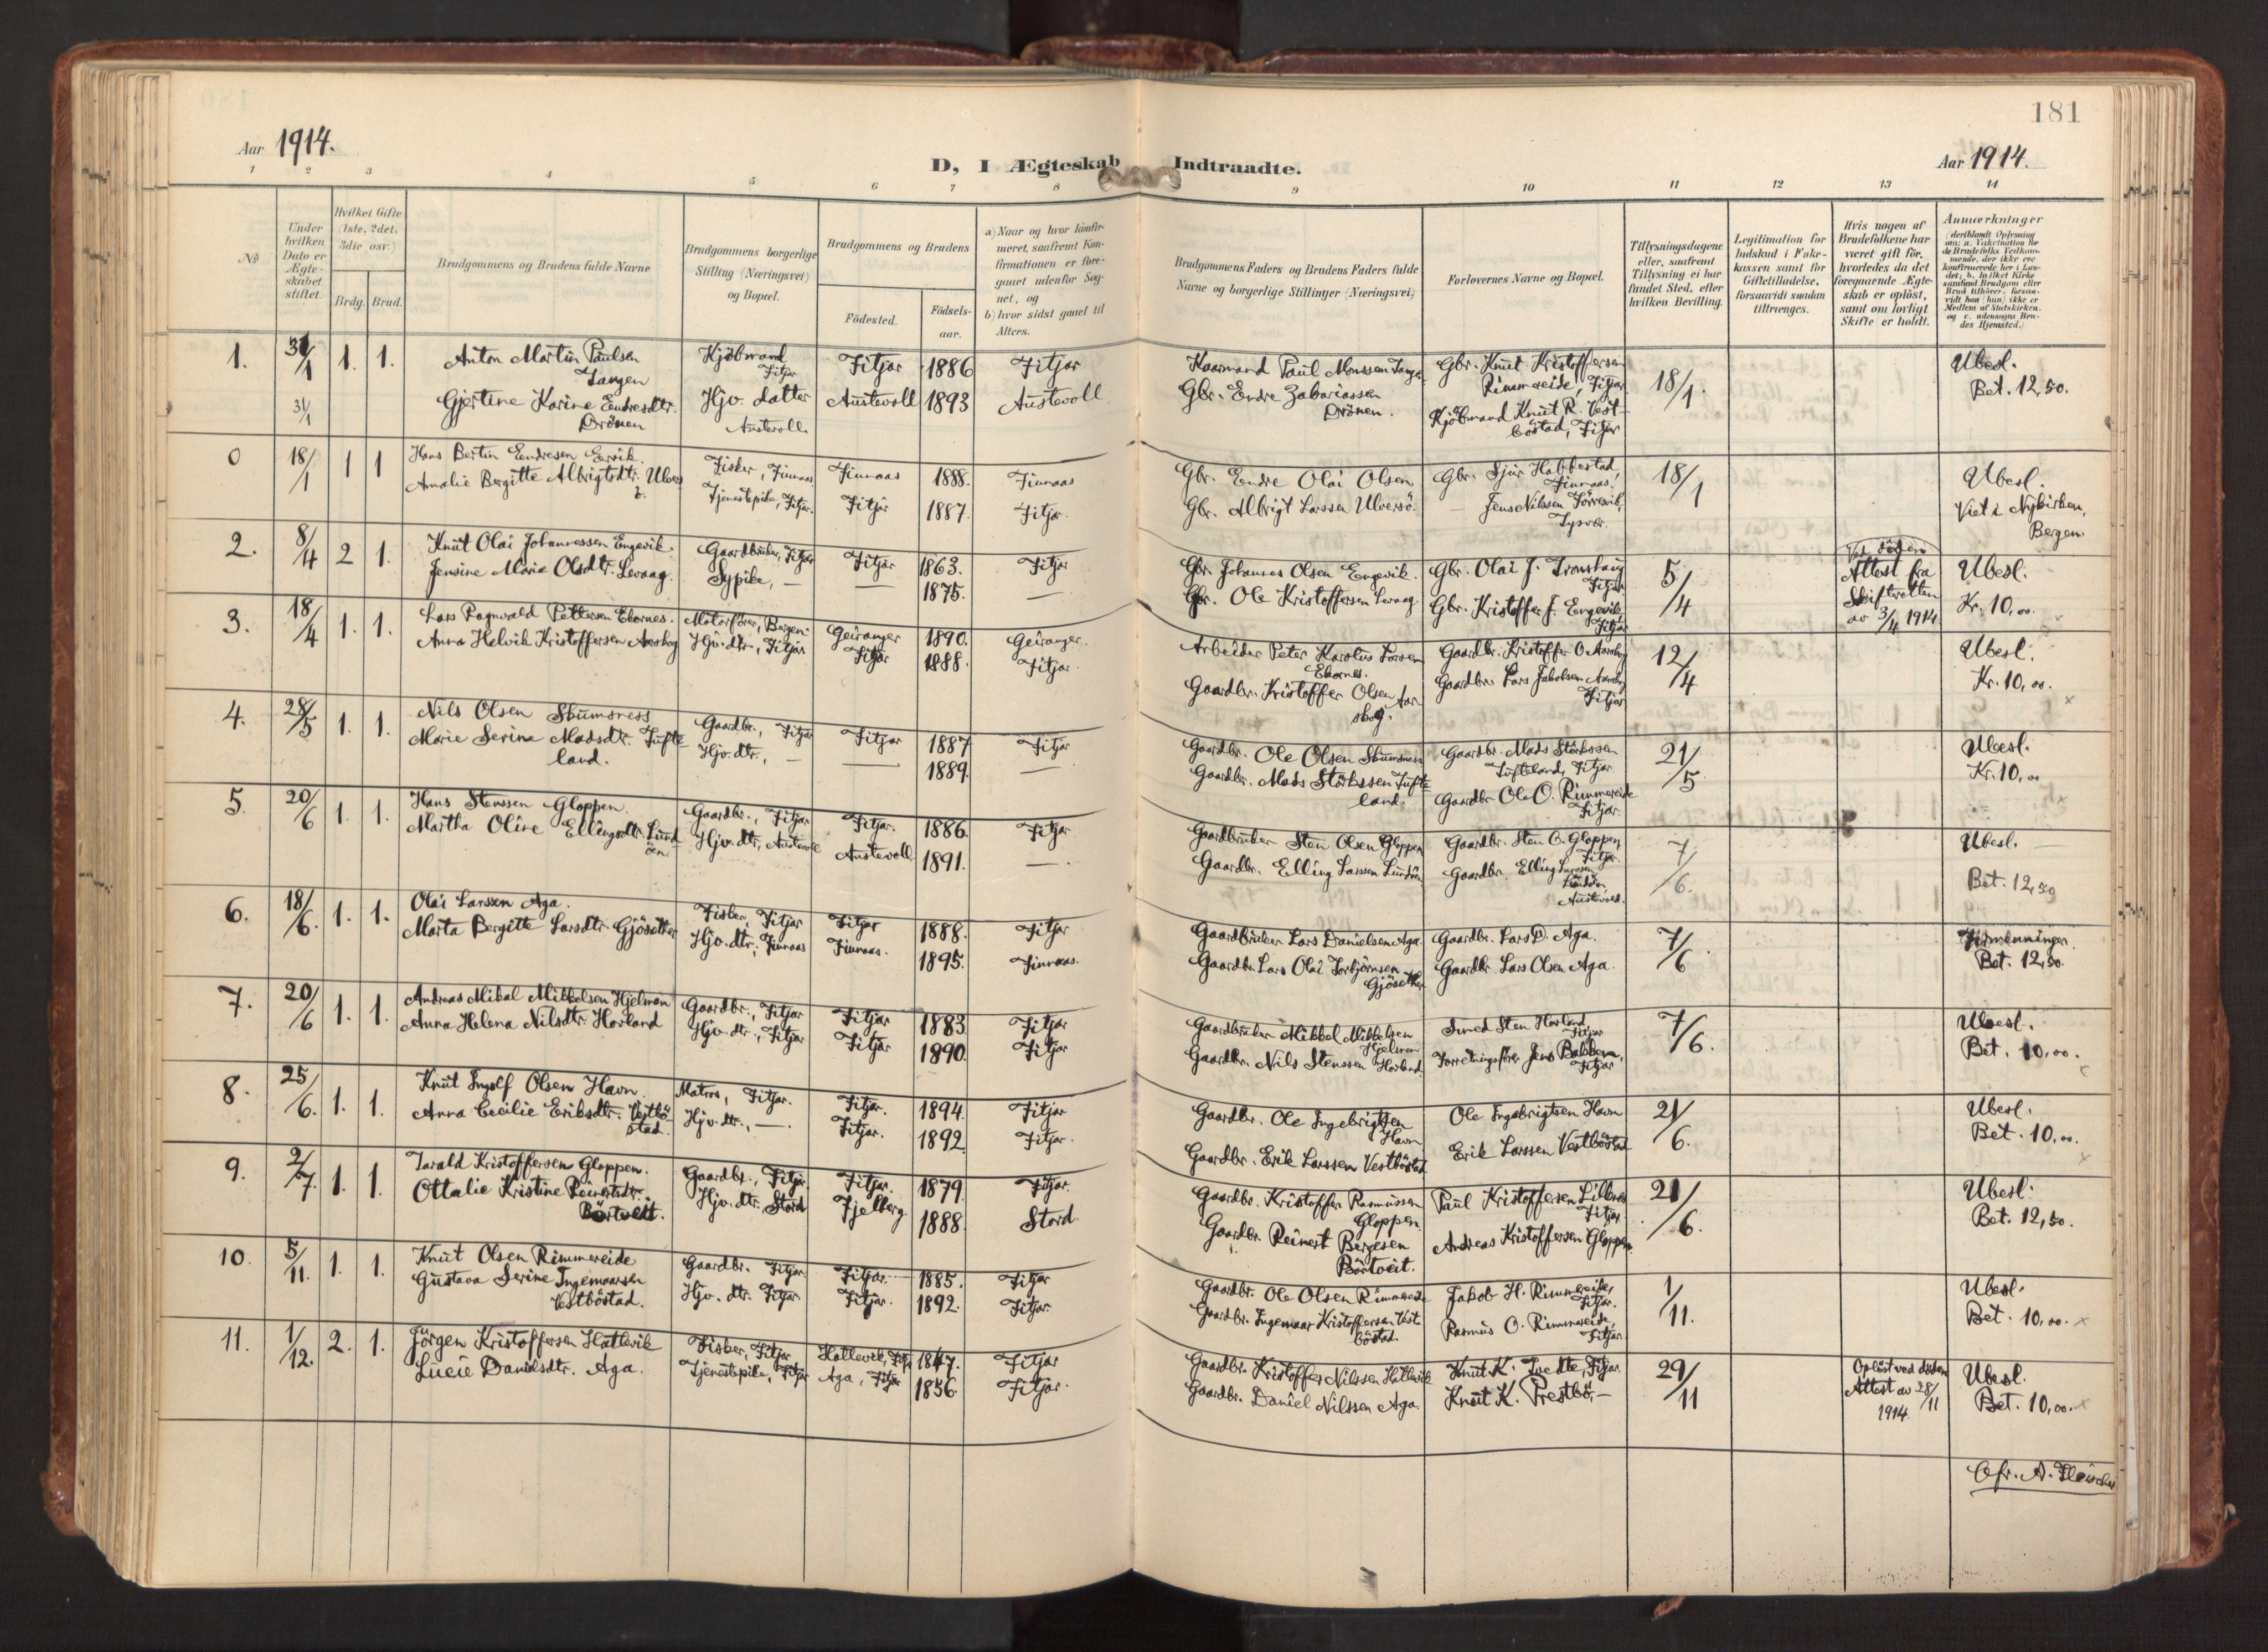 181
Aar 1914.
D, I Ægteskab Indtraadte.
Aar 1914.
1 2 3 4 5 6 7 8 9 10 11 12 13 14
No
Under hvilken Dato er Ægteskabet stiftet.
Hvilket Gifte (1ste, 2det, 3die osv.)
Brdg. Brud.
Brudgommens og Brudens fulde Navne
Brudgommens borgerlige Stilling (Næringsvei) og Bopæl.
Brudgommens og Brudens
Födested.
Födselsaar.
a) Naar og hvor konfirmeret, saafremt Konfirmationen er foregaaet udenfor Sognet, og
b) hvor sidst gaaet til Alters.
Brudgommens Faders og Brudens Faders fulde Navne og borgerlige Stillinger (Næringsvei)
Forlovernes Navne og Bopæl.
Tillysningsdagene eller, saafremt Tillysning ei har fundet Sted, efter hvilken Bevilling.
Legitimation for Indskud i Enkekassen samt for Giftetilladelse, forsaavidt saadan tiltrænges.
Hvis nogen af Brudefolkene har været gift før, hvorledes da det foregaaende Ægteskab er oplöst, samt om lovligt Skifte er holdt.
Anmærkninger
1. 31/1 1. 1. Anton Martin Paulsen Langen Kjöbmand Fitjar Fitjar 1886 Fitjar Paul Monssen Gbr. Knut Kristoffersen Rimmereide, Fitjar 18/1 Ubesl. Bet. 12,50.
31/1 Gjertine Karine Endresdtr. Drönen Hjv. datter Austevoll Austevoll 1893 Austevoll Gbr. Endre Zakariassen Drönen. Kjöbmand Knut R. Vestböstad, Fitjar
0 18/1 1 1 Hans Bertin Endresen Fisker, Finnaas Finnaas 1888. Finnaas Gbr. Endre Olai Olsen Gbr. Sjur Habbestad, Finnaas. 18/1 Ubesl. Viet i Nykirken, Bergen.
Amalie Bergitte Albrigtsdtr. Tjenestepike, Fitjar. Fitjar 1887. Fitjar. Gbr. Albrigt Larssen Ulversö. Jens Nilssen
2. 8/4 2 1. Knut Olai Johannessen Engevik. Gaardbruker, Fitjar Fitjar 1863. Fitjar Gbr. Johannes Olsen Engevik. Gbr. Olai J. Fitjar 5/4 Ved döden Attest fra Skifteretten av 3/4 1914 Ubesl. Kr. 10,00.
Jensine Marie Olsdtr. Levaag. Sypike, — — 1875. — Gbr. Ole Kristoffersen Levaag. Gbr. Kristoffer J. Engevik, Fitjar
3. 18/4 1. 1. Lars Ragnvald Pettersen Ekornes. Motorförer, Bergen. Geiranger 1890. Geiranger. Arbeider Peter Karolus Larsen Ekornes. Gaardbr. Kristoffer O. Aarskog 12/4 Ubesl. Kr. 10,00.
Anna Helvik Kristoffersen Aarskog Hjv. dtr., Fitjar Fitjar 1888. Fitjar. Gaardbr. Kristoffer Olsen Aarskog. Gaardbr. Lars Jakobsen Aarskog Fitjar
4. 28/5 1. 1. Nils Olsen Skumsness Gaardbr., Fitjar Fitjar 1887 Fitjar Gaardbr. Ole Olsen Skumsness Gaardbr. Mads Störkssen Tufteland, Fitjar. 21/5 Ubesl. Kr. 10,00
Marie Serine Madsdtr. Tufteland. Hjv. dtr., — — 1889. — Gaardbr. Mads Störkssen Tufteland. Gaardbr Ole O. Rimmereide Fitjar.
5. 20/6 1. 1. Hans Stenssen Gloppen. Gaardbr., Fitjar Fitjar. 1886. Fitjar Gaardbruker Sten Olsen Gloppen Gaardbr. Sten O. Gloppen, Fitjar. 7/6. Ubesl. Bet. 12,50
Martha Oline Ellingsdtr. Lundöen Hjv. dtr, Austevoll Austevoll 1891. — Gaardbr. Elling Larssen Lundöen Gaardbr. Elling Larssen Lundöen, Austevoll.
6. 18/6. 1. 1. Olai Larssen Aga. Fisker, Fitjar Fitjar 1888. Fitjar Gaardbruker Lars Danielsen Aga Gaardbr. Lars D. Aga. 7/6 Bet. 12,50.
Marta Bergitte Larsdtr. Gjösæter Hjv. dtr., Finnaas Finnaas. 1895. Finnaas. Gaardbr. Lars Olai Torbjörnsen Gjösæter Gaardbr. Lars Olsen Aga.
7. 20/6 1. 1. Andreas Mikal Mikkelsen Hjelmen Gaardbr., Fitjar Fitjar 1883 Fitjar Gaardbruker Mikkel Mikkelsen Hjelmen Smed Sten Hovland Fitjar 7/6. Ubesl. Bet. 10,00.
Anna Helena Nilsdtr. Hovland Hjv. dtr., Fitjar Fitjar 1890. Fitjar Gaardbr. Nils Stenssen Hovland. Forretningsförer Jens Fitjar
8. 25/6. 1. 1. Knut Ingolf Olsen Havn. Matros, Fitjar. Fitjar. 1894. Fitjar Gaardbr. Ole Ingebrigtsen Havn Ole Ingebrigtsen Havn 21/6. Ubesl. Bet. 10,00.
Anna Cecilie Eriksdtr. Vestböstad. Hjv. dtr., —. Fitjar. 1892. Fitjar. Gaardbr. Erik Larssen Vestböstad Erik Larssen Vestböstad
9. 2/7. 1. 1. Tarald Kristoffersen Gloppen. Gaardbr., Fitjar. Fitjar. 1879. Fitjar. Gaardbr. Kristoffer Rasmussen Gloppen. Paul Kristoffersen Fitjar 21/6. Ubesl. Bet. 12,50.
Ottalie Kristine Reinertsdtr. Börtveit. Hjv. dtr. Stord Fjelberg 1888. Stord Gaardbr. Reinert Bergesen Börtveit. Andreas Kristoffersen Gloppen
10. 5/11. 1. 1. Knut Olsen Rimmereide Gaardbr. Fitjar Fitjar. 1885. Fitjar Gaardbr. Ole Olsen Rimmereide Jakob H. Rimmereide, Fitjar. 1/11. Ubesl. Bet. 10,00.
Gustava Serine Ingemaarsen Vestböstad. Hjv. dtr. Fitjar Fitjar. 1892. Fitjar. Gaardbr. Ingemaar Kristoffersen Vestböstad. Rasmus O. Rimmereide, Fitjar.
11. 1/12. 2. 1. Jörgen Kristoffersen Hatlevik Fisker, Fitjar Hatlevik, 1847. Fitjar Gaardbr. Kristoffer Nilssen Hatlevik Knut K. Tvedte, Fitjar. 29/11 Oplöst ved döden Attest av 28/11 1914. Ubesl. Bet. 10,00.
Lucie Danielsdtr. Aga. Tjenestepike, Fitjar Aga, Fitjar 1856. Fitjar. Gaardbr. Daniel Nilssen Aga. Knut K. Prestbö, —